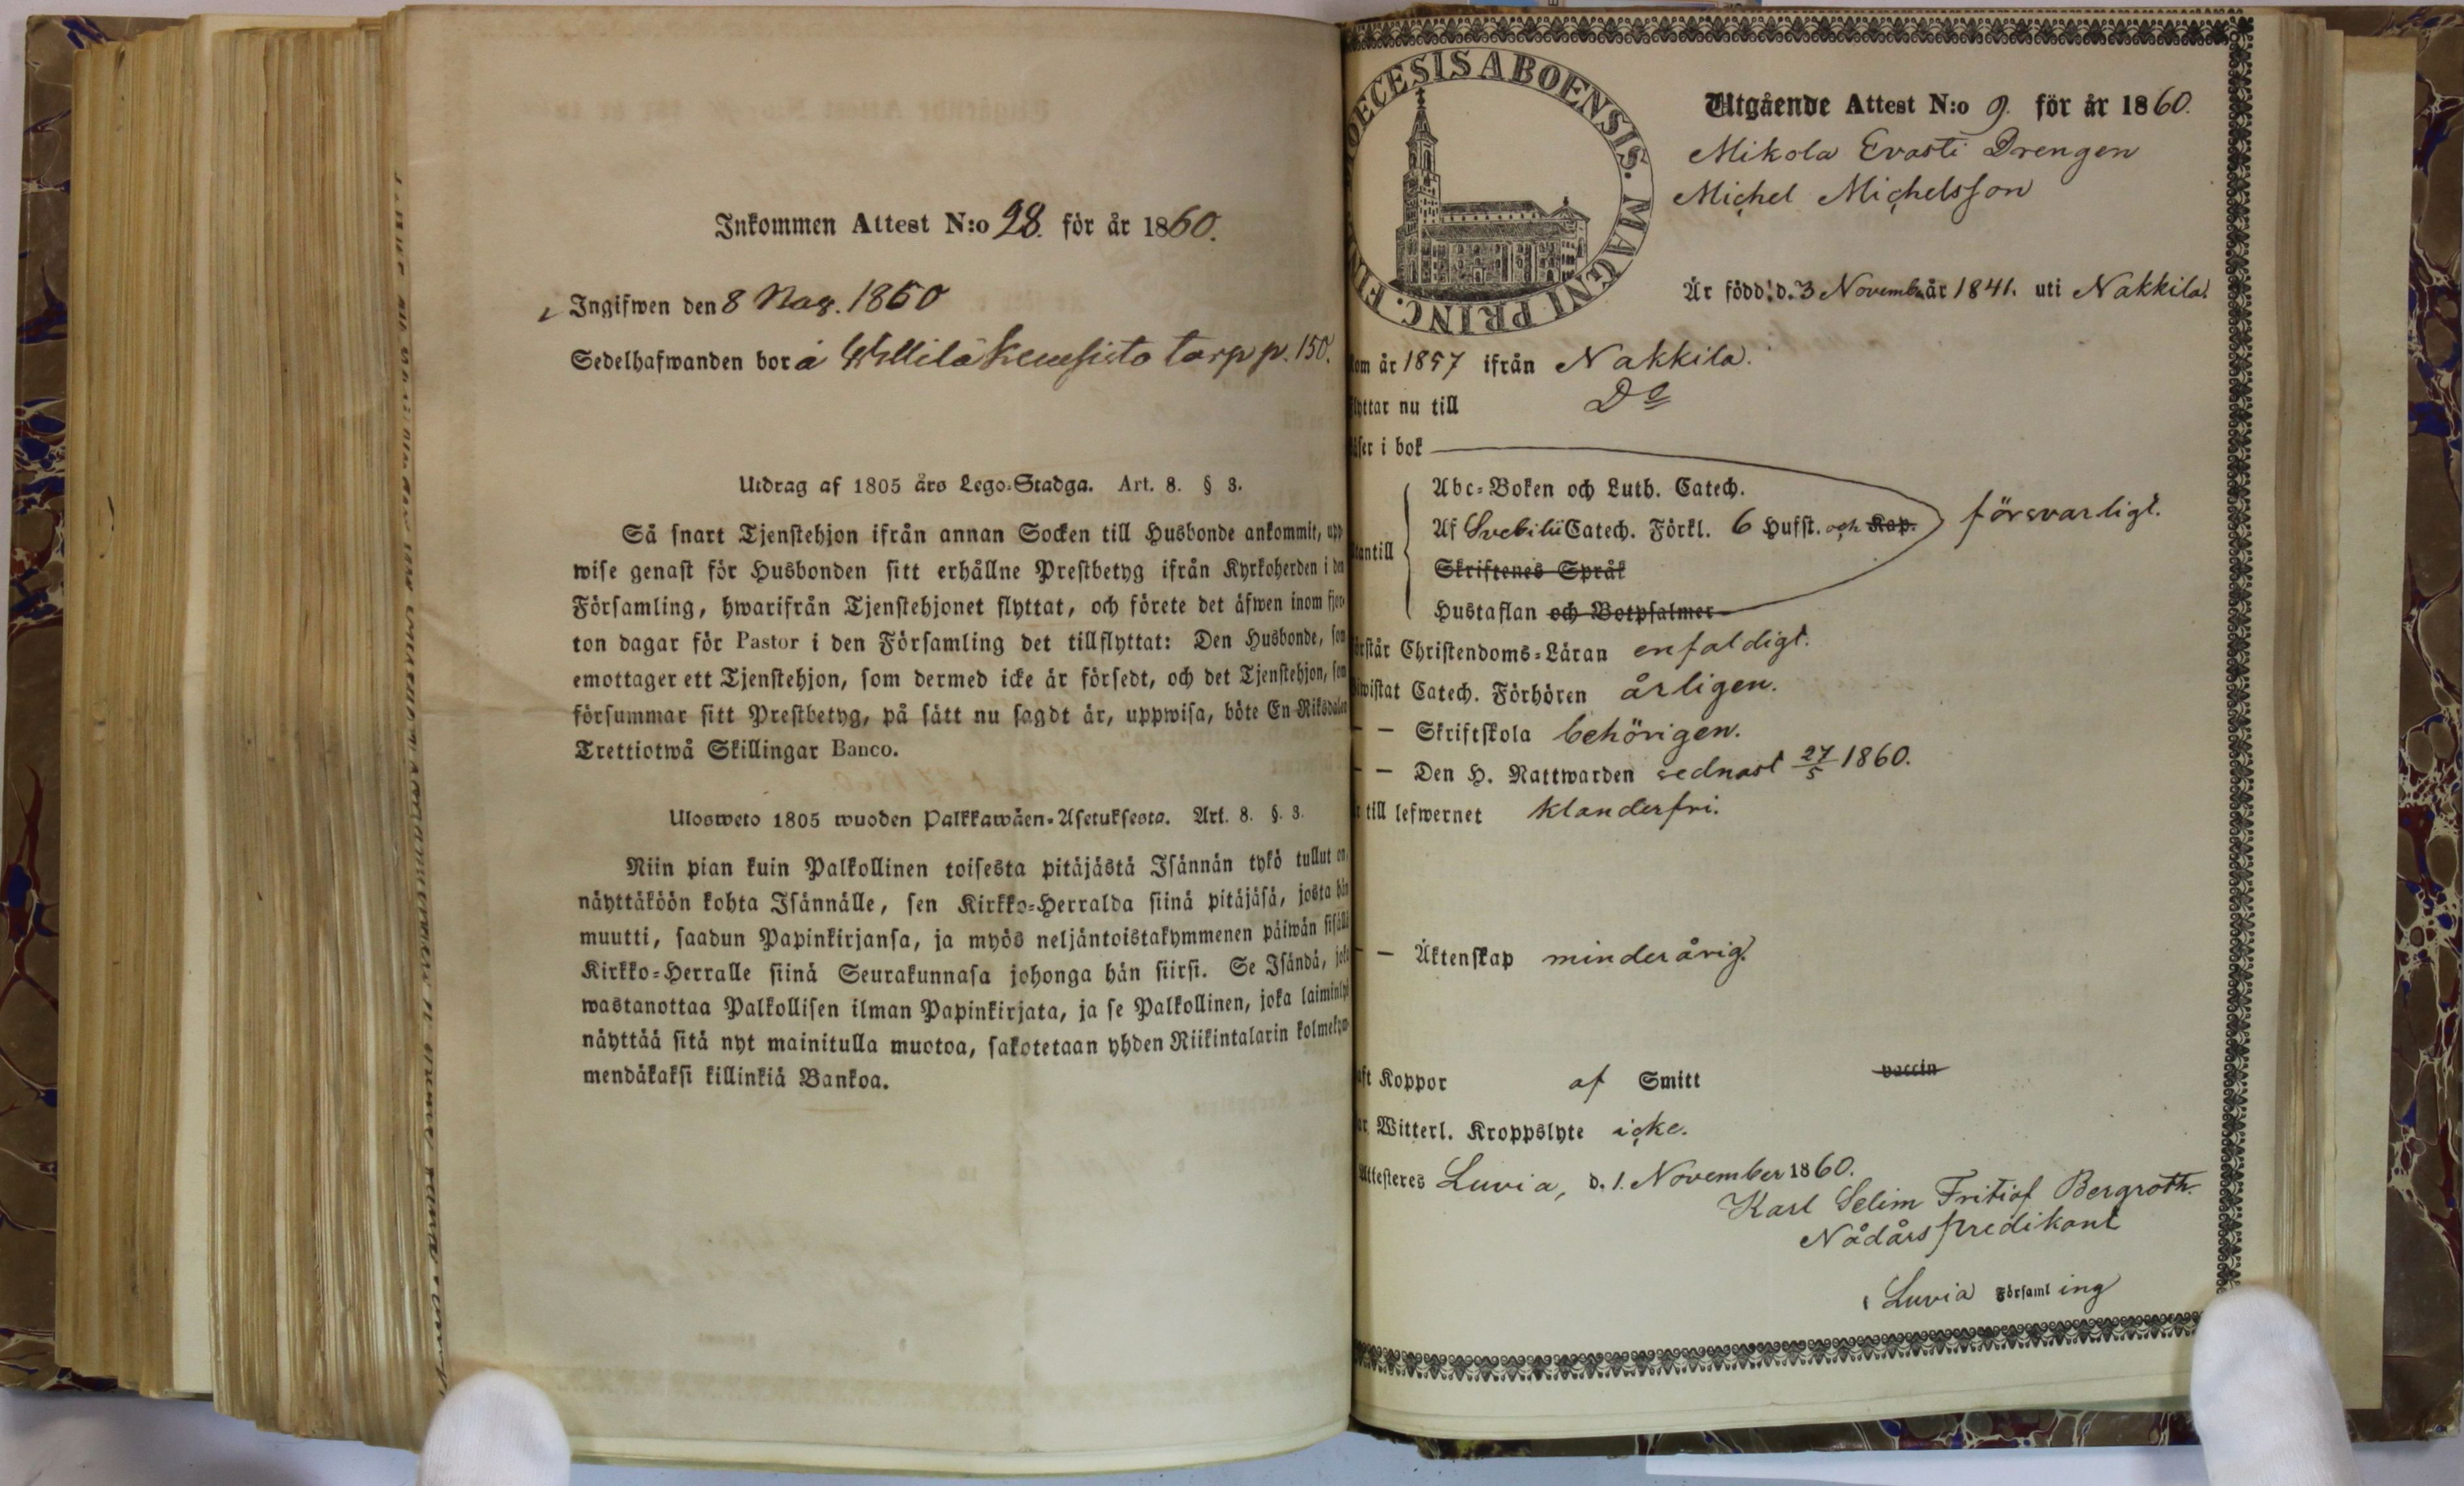 Inkommen Attest N:o 28. för år 1860.
Ingifwen den 8 1860
Sedelhafwanden bor å torp p. 150.
Utdrag af 1805 års Lego-Stadga. Art. 8. § 3.
Så snart Tjenstehjon ifrån annan Socken till Husbonde ankommit, upp-
wise genast för Husbonden sitt erhållne Prestbetyg ifrån Kyrkoherden i den
Församling, hwarifrån Tjenstehjonet flyttat, och förete det äfwen inom fjor-
ton dagar för Pastor i den Församling det tillflyttat: Den Husbonde, som
emottager ett Tjenstehjon, som dermed icke är försedt, och det Tjenstehjon, som
försummar sitt Prestbetyg, på sätt nu sagdt är, uppwisa, böte En Riksdaler
Trettiotwå Skillingar Banco.
Ulosweto 1805 wuoden Palkkawäen-Asetuksesta. Art. 8. §. 3.
Niin pian kuin Palkollinen toisesta pitäjästä Isännän tykö tullut on,
näyttäköön kohta Isännälle, sen Kirkko-Herralda siinä pitäjäsä, josta hän
muutti, saadun Papinkirjansa, ja myös neljäntoistakymmenen päiwän sisällä
Kirkko-Herralle siinä Seurakunnasa johonga hän siirsi. Se Isändä, joka
wastanottaa Palkollisen ilman Papinkirjata, ja se Palkollinen, joka laiminlyö
näyttää sitä nyt mainitulla muotoa, sakotetaan yhden Riikintalarin kolmekym-
mendäkaksi killinkiä Bankoa.
DIOECESIS ABOENSIS. MAGNI PRINC. FIN
Utgående Attest N:o 9. för år 1860.
Mikola Evasti Drengen
Michel Michelsson
Är född: d. 3 Novemb. år 1841. uti Nakkila.
kom år 1857 ifrån Nakkila.
flyttar nu till Do
läser i bok
Abc-Boken och Luth. Catech.
utantill Af Svebilii Catech. Förkl. 6 Hufst. och Kap. försvarligt.
Skriftenes Språk
Hustaflan och Botpsalmer
förstår Christendoms-Läran enfaldigt.
biwistat Catech. Förhören årligen.
— — Skriftskola behörigen.
— — Den H. Nattwarden sednast 27/5 1860.
är till lefwernet klanderfri.
— — Äktenskap minderårig.
haft Koppor af Smitt vaccin
har Witterl. Kroppslyte icke.
Attesteres Luvia, d. 1. November 1860.
Karl Selim Fritiof Bergroth.
Nådårspredikant
i Luvia Församling